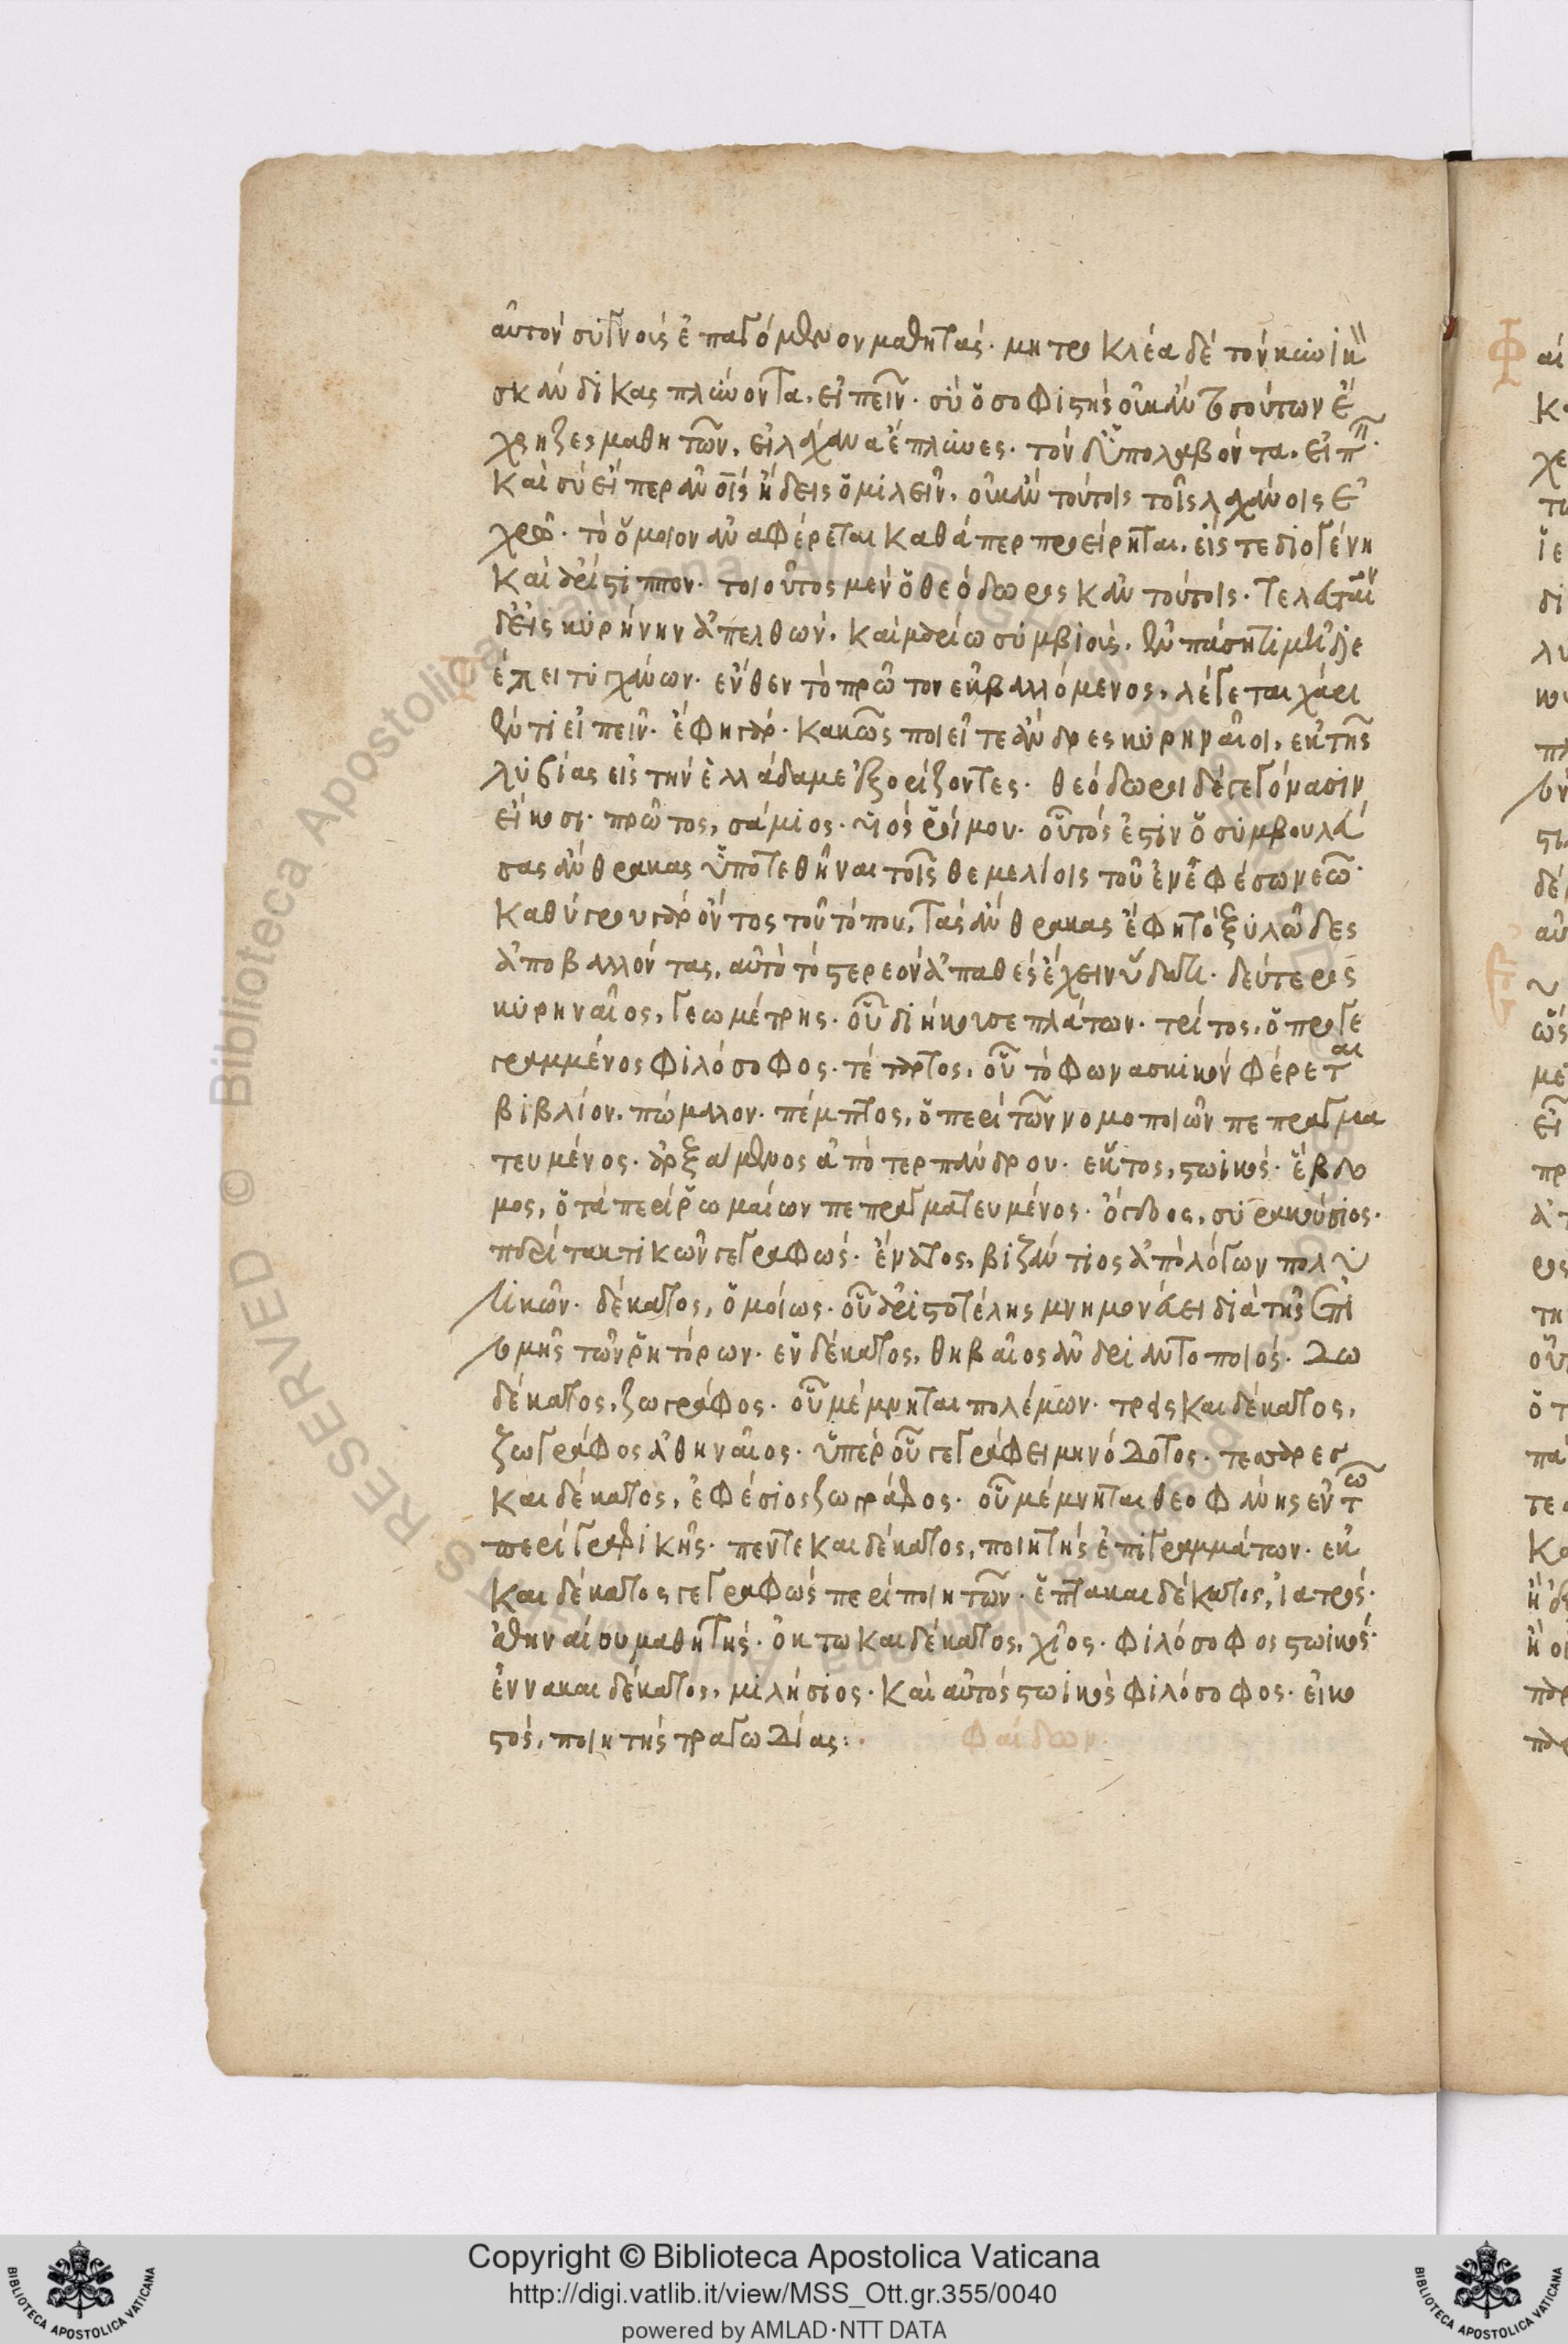 αὐτὸν συχνοὺς ἐπαγόμενον μαθητάς. μητροκλέα δὲ τὸν κυνικὸν
σκάνδικας πλύνοντα, εἰπεῖν. σὺ ὁ σοφιστὴς οὐκ ἂν τοσούτων ἔ
χρηζες μαθητῶν, εἰ λάχανα ἔπλυνες. τὸν δ' ὑπολαβόντα, εἰπεῖν.
καὶ σὺ εἴπερ ἀνοῖς ἤδεις ὁμιλεῖν, οὐκ ἂν τούτοις τοῖς λαχάνοις ἐ
χρῶ. τὸ ὅμοιον ἀναφέρεται καθάπερ προείρηται, εἴς τε διογένη
καὶ ἀρίστιππον. τοιοῦτος μὲν ὁ θεόδωρος κἀν τούτοις. τελευταῖον
δ' εἰς κυρήνην ἀπελθὼν, καὶ μαρίω συμβιοὺς, ἐν πάσῃ τιμῇ διε
έπει τυγχάνων. ἔνθεν τὸ πρῶτον ἐκβαλλόμενος, λέγεται χάρι
έν τι εἰπεῖν. ἔφη γάρ. κακῶς ποιεῖτε ἄνδρες κυρηναῖοι, ἐκ τῆς
λυβίας εἰς τὴν ἑλλάδα με ἐξορίζοντες. θεόδωροι δὲ γεγόνασιν
εἴκοσι. πρῶτος, σάμιος. υἱὸς ῥοίμου. οὗτός ἐστιν ὁ συμβουλεύ
σας ἄνθρακας ὑποτεθῆναι τοῖς θεμελίοις τοῦ ἐν ἐφέσω νεώ.
καθύγρου γὰρ ὄντος τοῦ τόπου, τοὺς ἄνθρακας ἔφη τὸ ξυλῶδες
ἀποβαλλόντας, αὐτὸ τὸ στερεὸν ἀπαθὲς ἔχειν ὕδατι. δεύτερος
κυρηναῖος, γεωμέτρης. οὗ διήκουσε πλάτων. τρίτος, ὁ προγε
γραμμένος φιλόσοφος. τέταρτος, οὗ τὸ φωνασκικὸν φέρεται
βιβλίον, πώμαλον. πέμπτος, ὁ περὶ τῶν νομοποιῶν πεπραγμα
τευμένος. ἀρξάμενος ἀπὸ τερπάνδρου. ἕκτος, στωικός. ἕβδο
μος, ὁ τὰ περὶ ῥωμαίων πεπραγματευμένος. ὄγδοος, συρακούσιος.
περὶ τακτικῶν γεγραφώς. ἔνατος, βιζάντιος ἀπὸ λόγων πολι
τικῶν. δέκατος, ὁμοίως. οὗ ἀριστοτέλης μνημονεύει διὰ τῆς ἐπι
τομῆς τῶν ῥητόρων. ἑνδέκατος, θηβαῖος ἀνδριαντοποιός. δω
δέκατος, ζωγράφος. οὗ μέμνηται πολέμων. τρεισκαιδέκατος,
ζωγράφος ἀθηναῖος. ὑπὲρ οὗ γεγράφει μηνόδοτος. τεσσαρεσ
καιδέκατος, ἐφέσιος ζωγράφος. οὗ μέμνηται θεοφάνης ἐν τῶ
περὶ γραφικῆς. πεντεκαιδέκατος, ποιητὴς ἐπιγραμμάτων. ἑκ
καιδέκατος γεγραφὼς περὶ ποιητῶν. ἑπτακαιδέκατος, ἰατρός.
ἀθηναίου μαθητής. ὀκτωκαιδέκατος, χῖος. φιλόσοφος στωικός.
ἐννακαιδέκατος, μιλήσιος. καὶ αὐτὸς στωικὸς φιλόσοφος. εἰκο
στός, ποιητὴς τραγωδίας:.
φαίδων.
RESERVED © Biblioteca Apostolica Vaticana
Copyright © Biblioteca Apostolica Vaticana
http://digi.vatlib.it/view/MSS_Ott.gr.355/0040
powered by AMLAD·NTT DATA
BIBLIOTECA APOSTOLICA VATICANA
BIBLIOTECA APOSTOLICA VATICANA